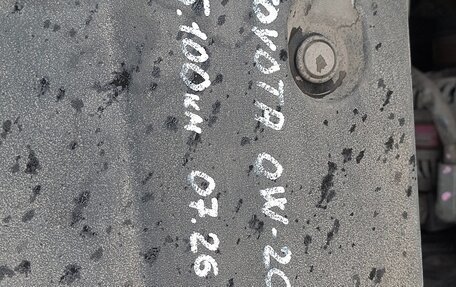 TOYOTA 0W-20
5.100км 07.26